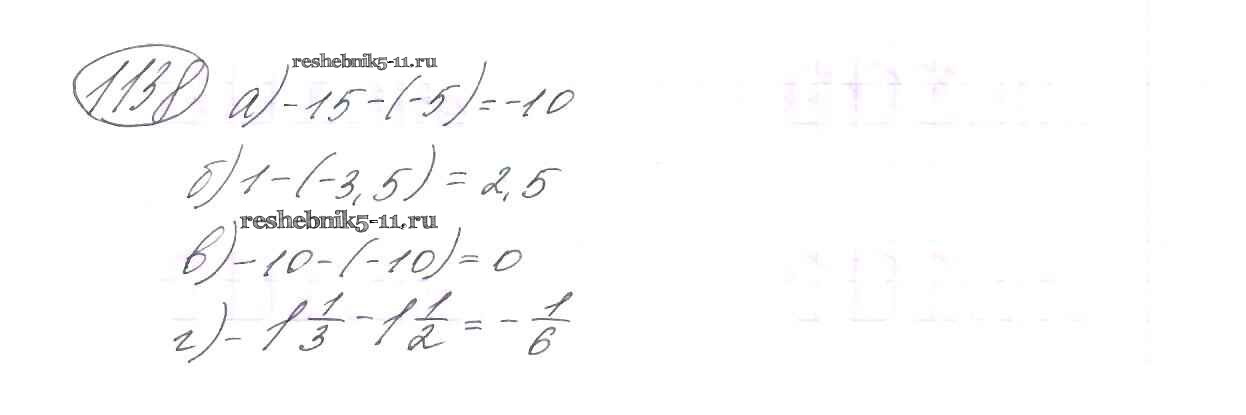 reshebnik5-11.ru
1138 а) -15-(-5)=-10
б) 1-(-3,5)=2,5
reshebnik5-11.ru
в) -10-(-10)=0
г) -1 1/3 - 1 1/2 = - 1/6